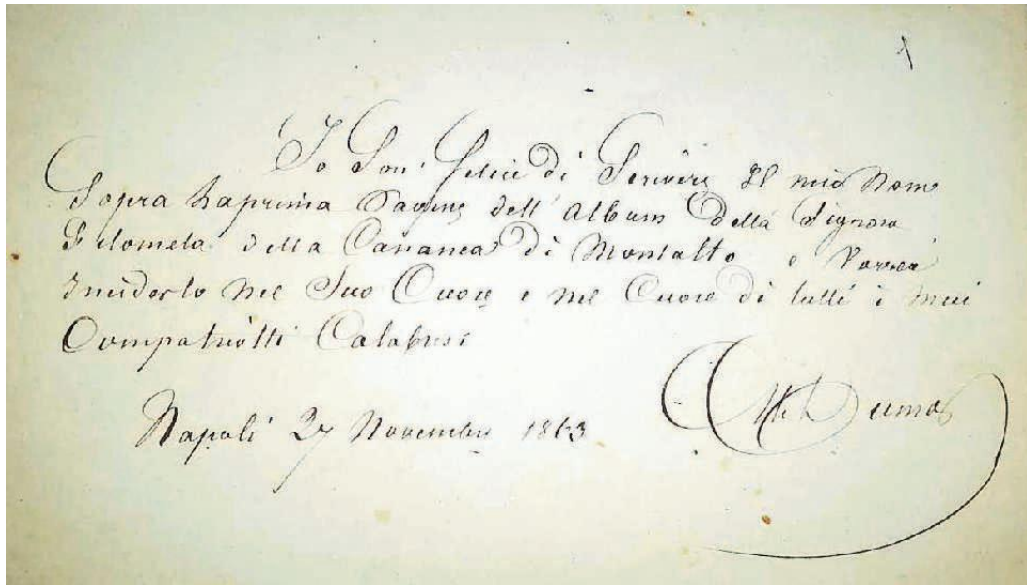 1
Io Son' felice di Scrivere Il mio Nome
Sopra La prima Pagina dell' Album della Signora
Filomela della Cananea di Montalto e Vorrei
Inciderlo Nel Suo Cuore e nel Cuore di tutti i miei
Compatriotti Calabresi
Napoli 27 Novembre 1863
Alex Dumas